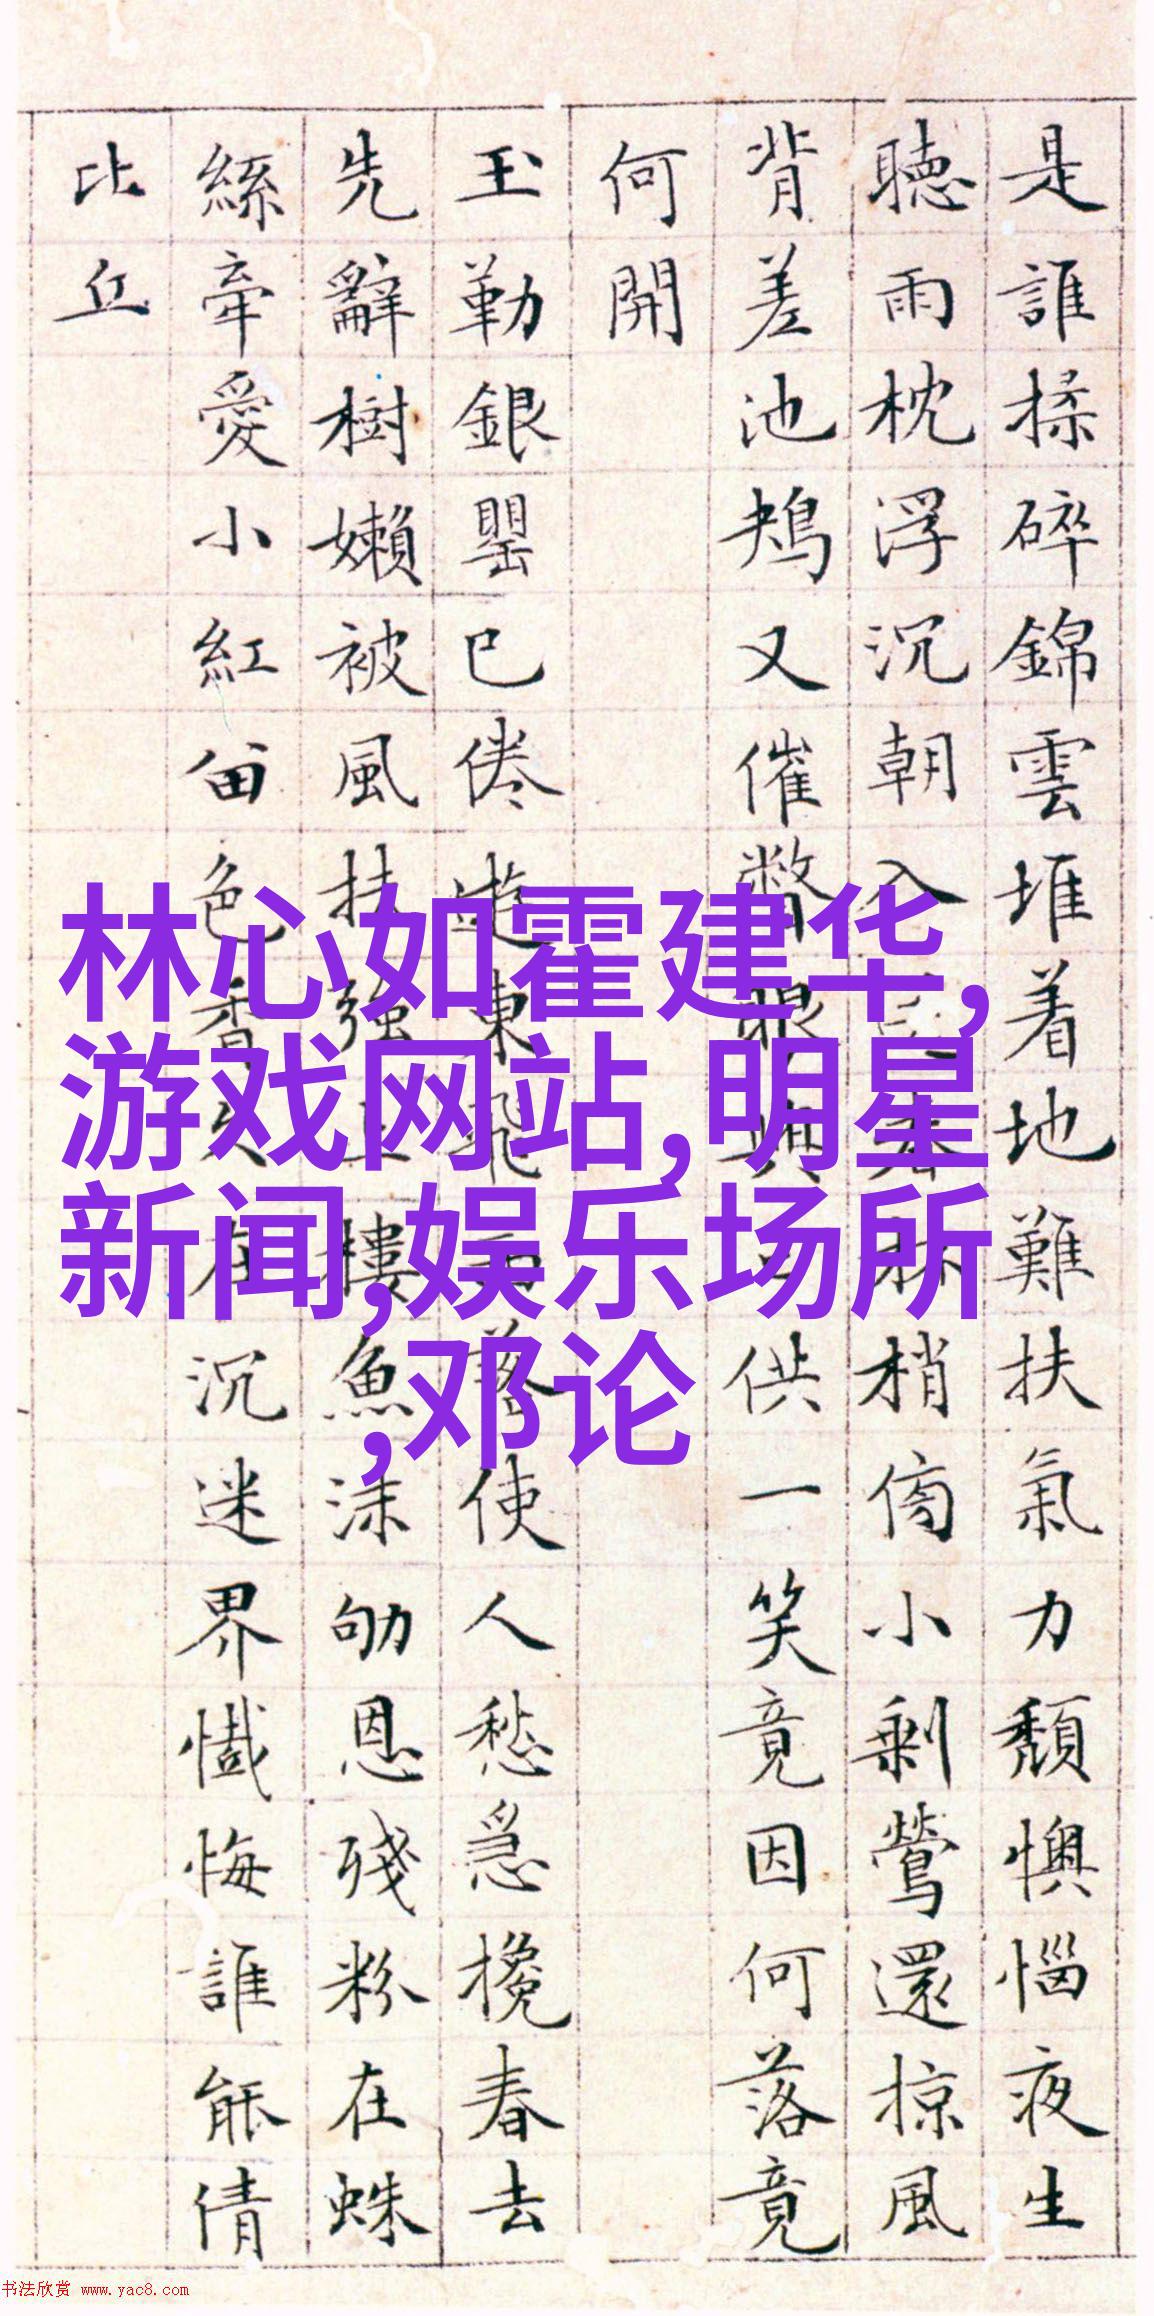 是誰揉碎錦雲堆着地難扶氣力頹懊惱夜生
聽雨枕浮沉朝入林梢傋小剩鶯還掠風
背差池鴂又催瞥眼供一笑竟因何落竟
何開
玉勒銀罌已倦遊東飛落使人愁急攙春去
先辭樹嬾被風扶強上樓魚沫劬恩殘粉在蛛
絲牽愛小紅色香在沉迷界懺悔誰能倩
比丘
林心如霍建华,
游戏网站,明星
新闻,娱乐场所
,邓论
书法欣赏 www.yac8.com